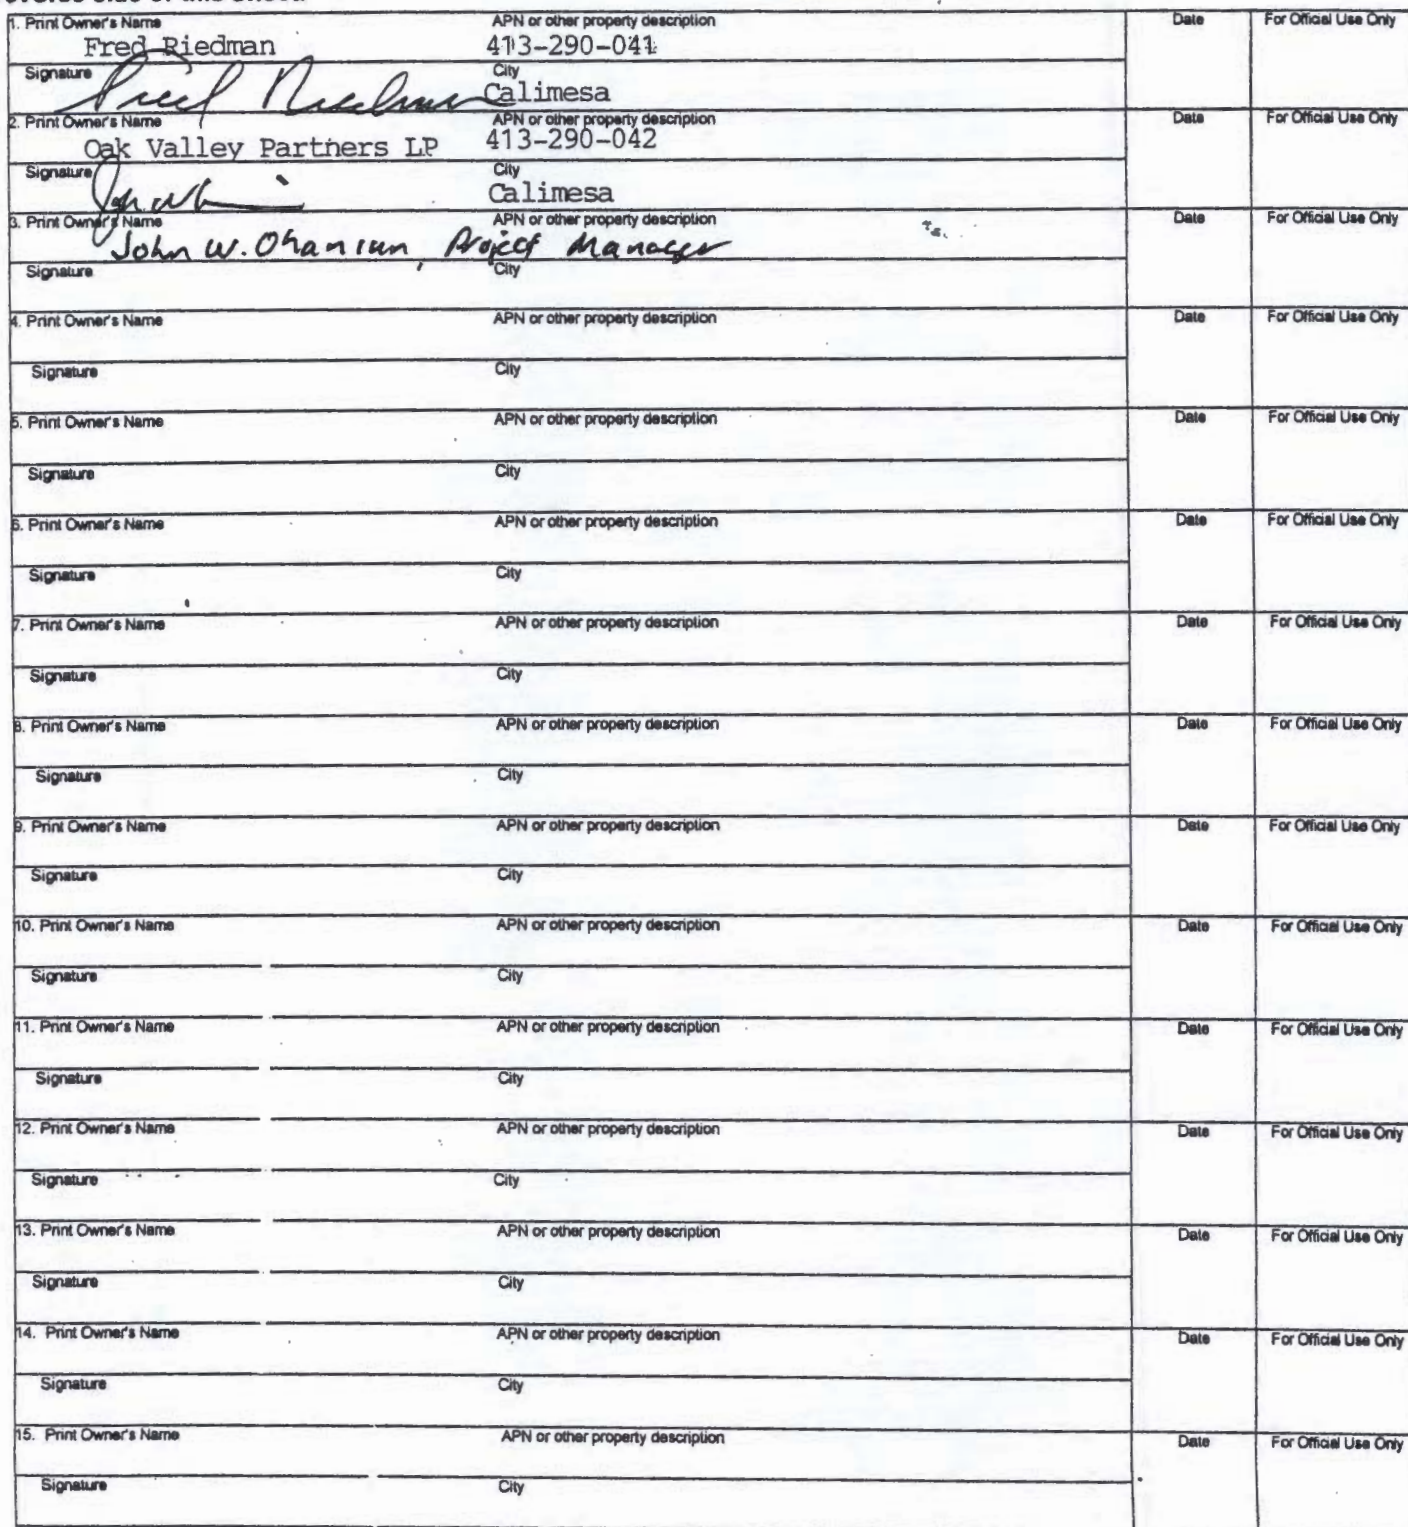 1. Print Owner's Name APN or other property description Date For Official Use Only
Fred Riedman 413-290-041
Signature City
Fred Riedman Calimesa
2. Print Owner's Name APN or other property description Date For Official Use Only
Oak Valley Partners LP 413-290-042
Signature City
Calimesa
3. Print Owner's Name APN or other property description Date For Official Use Only
John W. Ohanian, Project Manager
Signature City
4. Print Owner's Name APN or other property description Date For Official Use Only
Signature City
5. Print Owner's Name APN or other property description Date For Official Use Only
Signature City
6. Print Owner's Name APN or other property description Date For Official Use Only
Signature City
7. Print Owner's Name APN or other property description Date For Official Use Only
Signature City
8. Print Owner's Name APN or other property description Date For Official Use Only
Signature City
9. Print Owner's Name APN or other property description Date For Official Use Only
Signature City
10. Print Owner's Name APN or other property description Date For Official Use Only
Signature City
11. Print Owner's Name APN or other property description Date For Official Use Only
Signature City
12. Print Owner's Name APN or other property description Date For Official Use Only
Signature City
13. Print Owner's Name APN or other property description Date For Official Use Only
Signature City
14. Print Owner's Name APN or other property description Date For Official Use Only
Signature City
15. Print Owner's Name APN or other property description Date For Official Use Only
Signature City